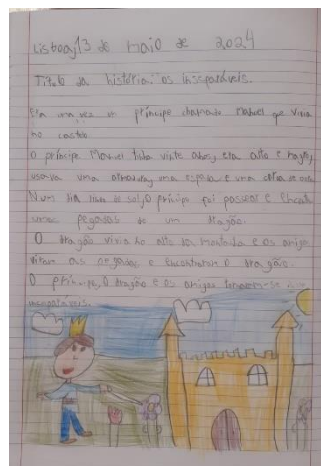 Lisboa, 13 de maio de 2024
Titulo da história: os inseparáveis.
Era uma vez um príncipe chamado Manuel que vivia
no castelo.
O príncipe Manuel tinha vinte anos, era alto e
usava uma armadura, uma espada e uma
Num dia lindo de sol, o príncipe foi passear e
umas pegadas de um dragão.
O dragão vivia no alto da montanha e os amigos
viram as pegadas e encontraram o dragão.
O príncipe, o dragão e os amigos tornaram-se
inseparáveis.